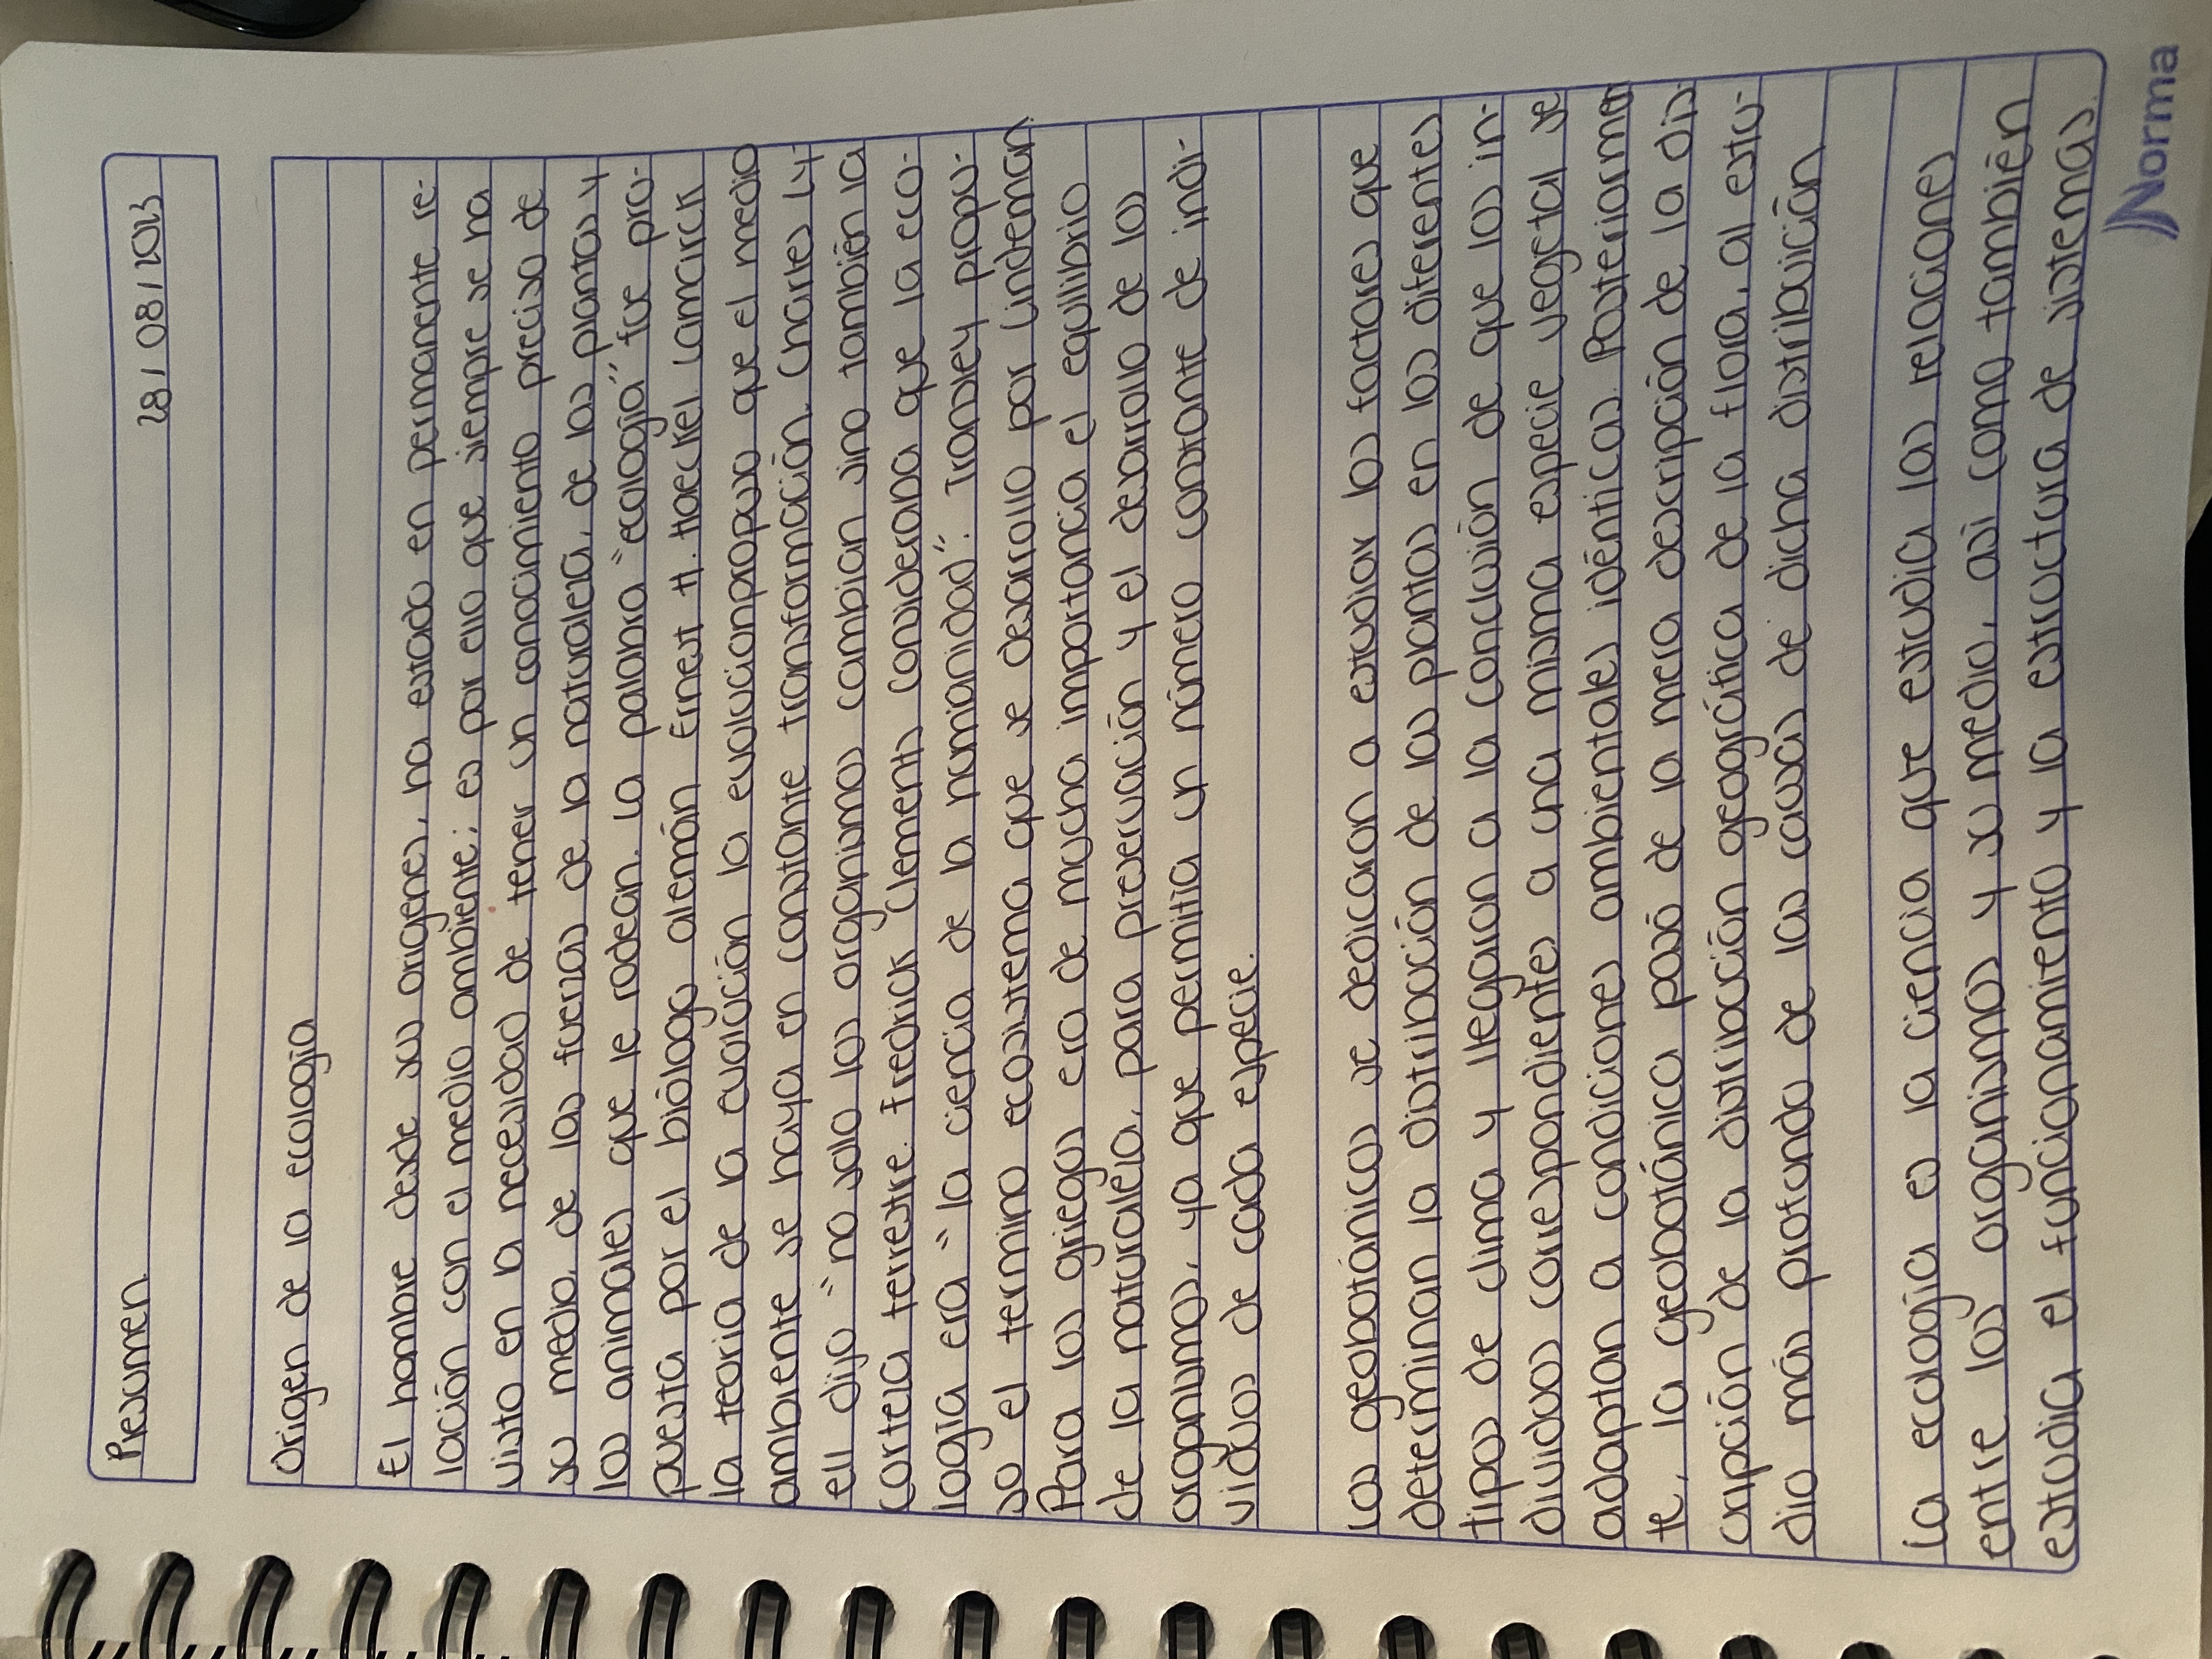 Resumen
28 / 08 / 2023
Origen de la ecología
El hombre desde sus orígenes, ha estado en permanente re-
lación con el medio ambiente; es por ello que siempre se ha
visto en la necesidad de tener un conocimiento preciso de
su medio, de las fuerzas de la naturaleza, de las plantas y
los animales que le rodean. La palabra "ecología" fue pro-
puesta por el biólogo alemán Ernest H. Haeckel. Lamarck
la teoria de la evolución la evolucionpropuso que el medio
ambiente se haya en constante transformación. Charles Ly-
ell dijo "no solo los organismos cambian sino también la
corteza terrestre. Fredrick Clements consideraba que la eco-
logía era "la ciencia de la humanidad". Transley propu-
so el termino ecosistema que se desarrollo por Lindeman.
Para los griegos era de mucha importancia el equilibrio
de la naturaleza, para preservación y el desarrollo de los
organismos, ya que permitía un número constante de indi-
viduos de cada especie.
Los geobotánicos se dedicaron a estudiar los factores que
determinan la distribución de las plantas en los diferentes
tipos de clima y llegaron a la conclusión de que los in-
dividuos correspondientes a una misma especie vegetal se
adaptan a condiciones ambientales idénticas. Posteriormen
te, la geobotánica pasó de la mera descripción de la dis-
cripción de la distribución geográfica de la flora, al estu-
dio más profundo de las causas de dicha distribución
La ecología es la ciencia que estudia las relaciones
entre los organismos y su medio, así como también
estudia el funcionamiento y la estructura de sistemas.
Norma